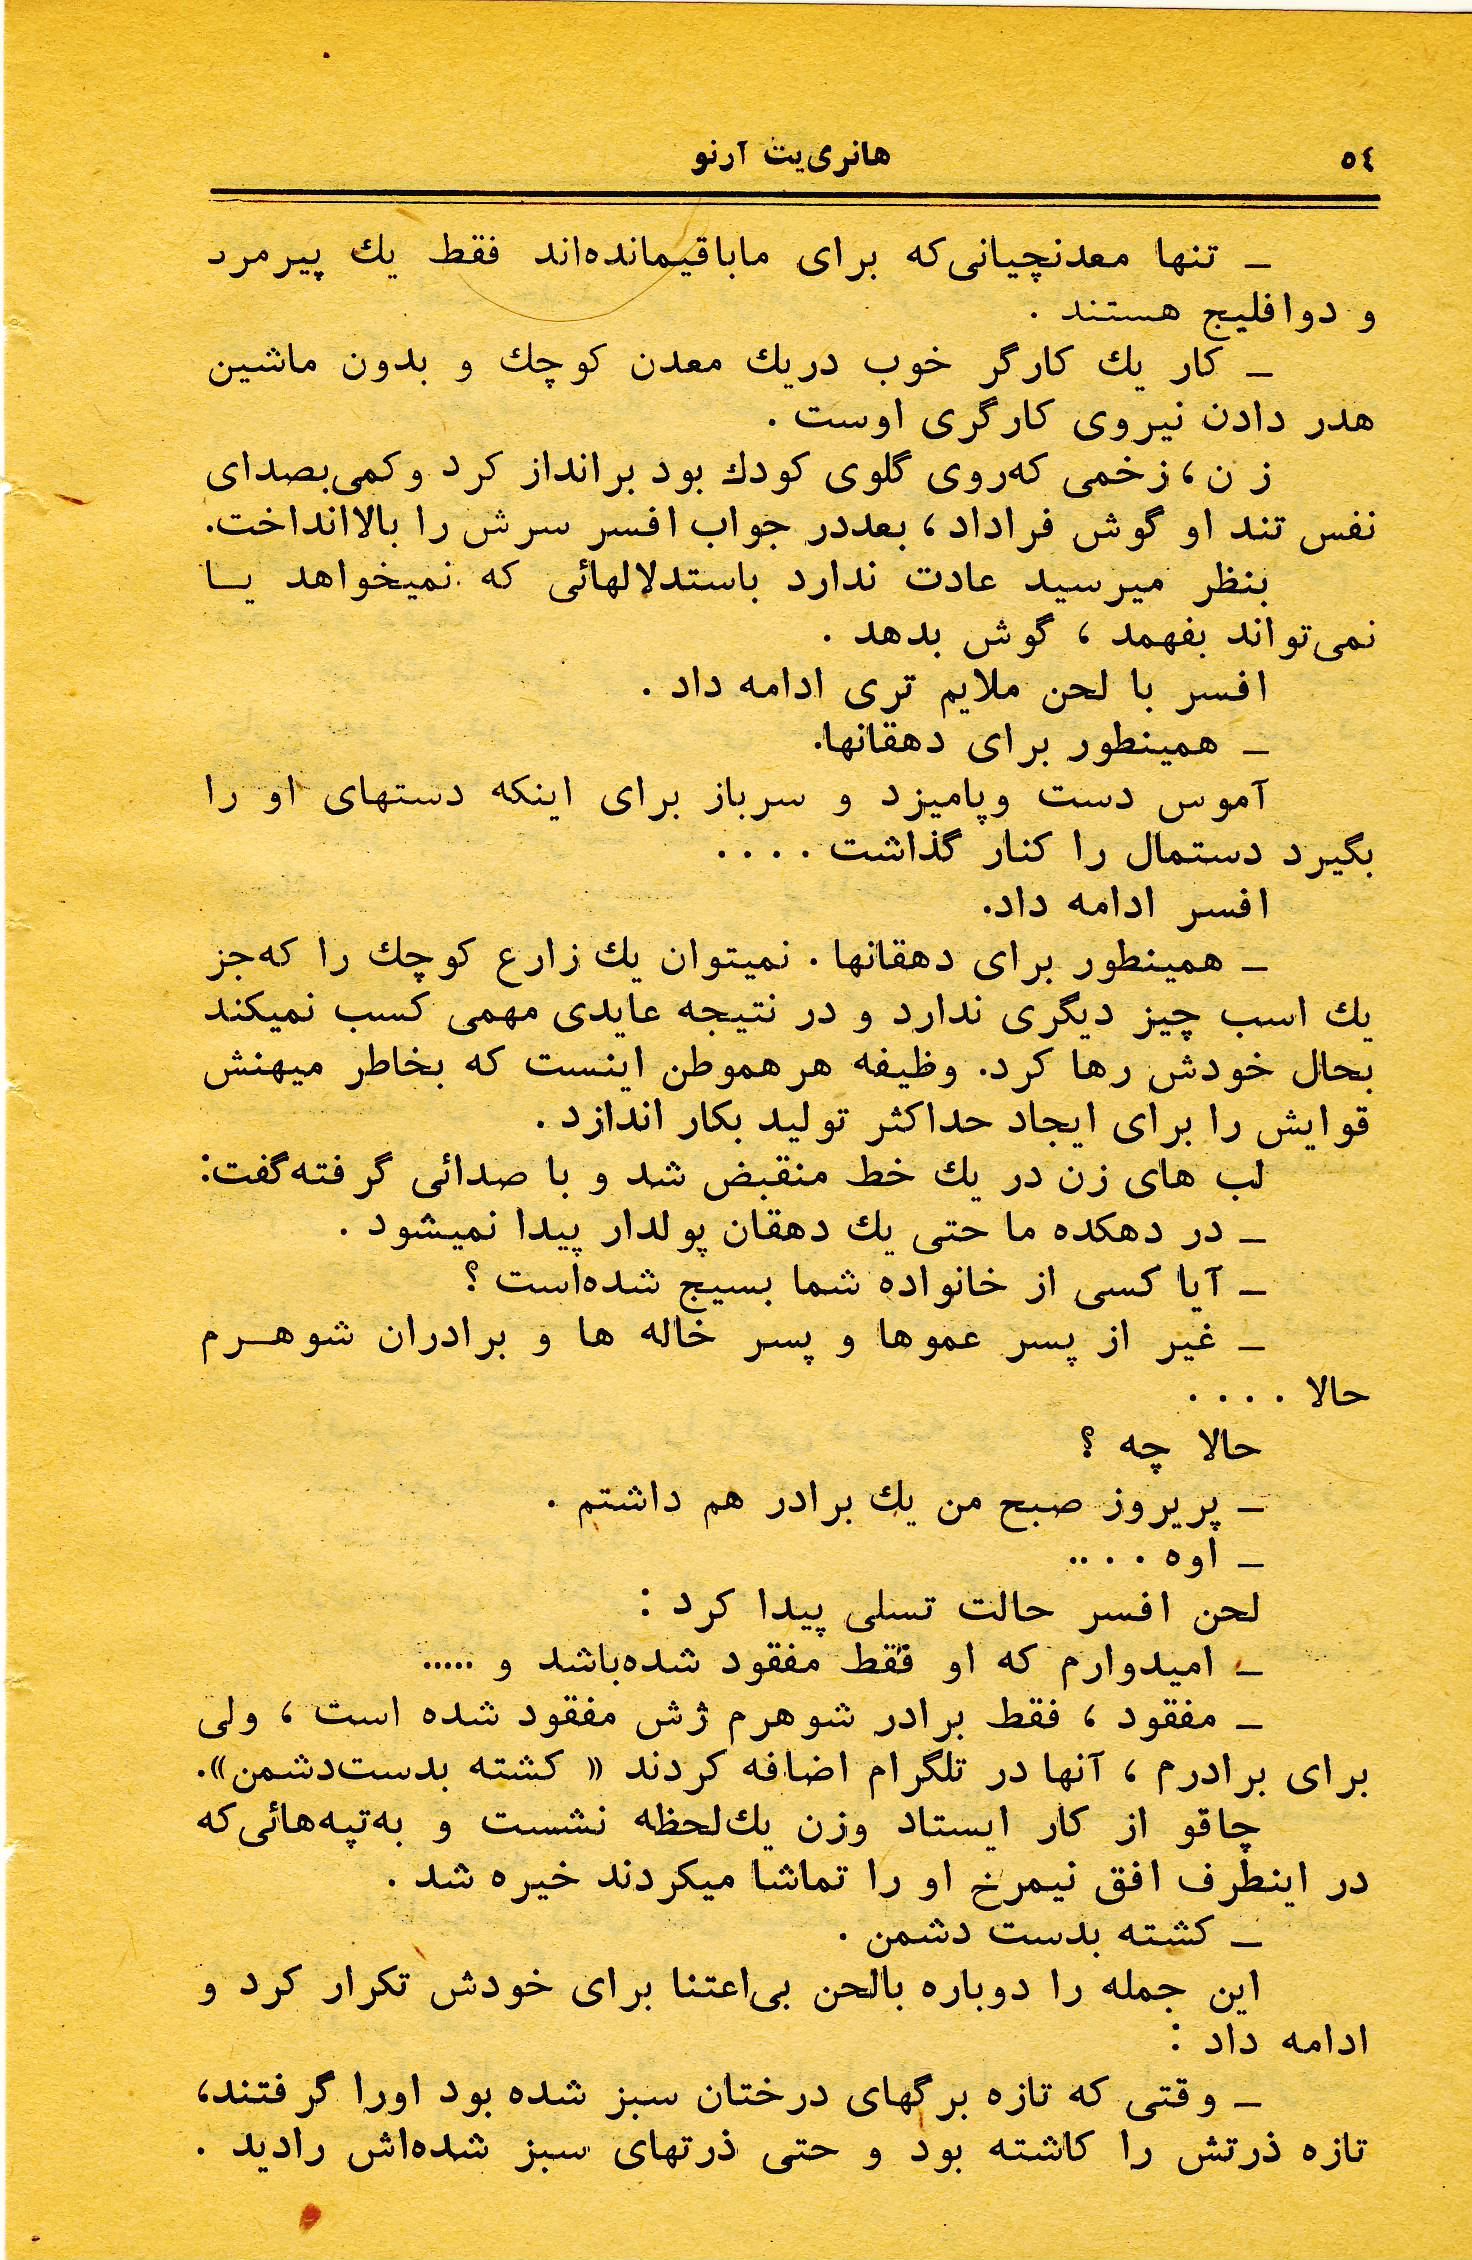 ۵۴
هانری‌یت آرنو
ـ تنها معدنچیانی‌که برای ماباقیمانده‌اند فقط یك پیرمرد
و دوافلیج هستند .
ـ کار یك کارگر خوب دریك معدن کوچك و بدون ماشین
هدر دادن نیروی کارگری اوست .
زن، زخمی که‌روی گلوی کودك بود برانداز کرد وکمی‌بصدای
نفس تند او گوش فراداد ، بعددر جواب افسر سرش را بالاانداخت.
بنظر میرسید عادت ندارد باستدلالهائی که نمیخواهد یــا
نمی‌تواند بفهمد ، گوش بدهد .
افسر با لحن ملایم تری ادامه داد .
ـ همینطور برای دهقانها.
آموس دست وپامیزد و سرباز برای اینکه دستهای او را
بگیرد دستمال را کنار گذاشت . . . .
افسر ادامه داد.
ـ همینطور برای دهقانها . نمیتوان یك زارع کوچك را که‌جز
یك اسب چیز دیگری ندارد و در نتیجه عایدی مهمی کسب نمیکند
بحال خودش رها کرد. وظیفه هرهموطن اینست که بخاطر میهنش
قوایش را برای ایجاد حداکثر تولید بکار اندازد .
لب های زن در یك خط منقبض شد و با صدائی گرفته‌گفت:
ـ در دهکده ما حتی یك دهقان پولدار پیدا نمیشود .
ـ آیا کسی از خانواده شما بسیج شده‌است ؟
ـ غیر از پسر عموها و پسر خاله ها و برادران شوهــرم
حالا . . . .
حالا چه ؟
ـ پریروز صبح من یك برادر هم داشتم .
ـ اوه . . ..
لحن افسر حالت تسلی پیدا کرد :
ـ امیدوارم که او فقط مفقود شده‌باشد و .....
ـ مفقود ، فقط برادر شوهرم ژش مفقود شده است ، ولی
برای برادرم ، آنها در تلگرام اضافه کردند « کشته بدست‌دشمن».
چاقو از کار ایستاد وزن یك‌لحظه نشست و به‌تپه‌هائی‌که
در اینطرف افق نیمرخ او را تماشا میکردند خیره شد .
ـ کشته بدست دشمن .
این جمله را دوباره بالحن بی‌اعتنا برای خودش تکرار کرد و
ادامه داد :
ـ وقتی که تازه برگهای درختان سبز شده بود اورا گرفتند،
تازه ذرتش را کاشته بود و حتی ذرتهای سبز شده‌اش رادید .